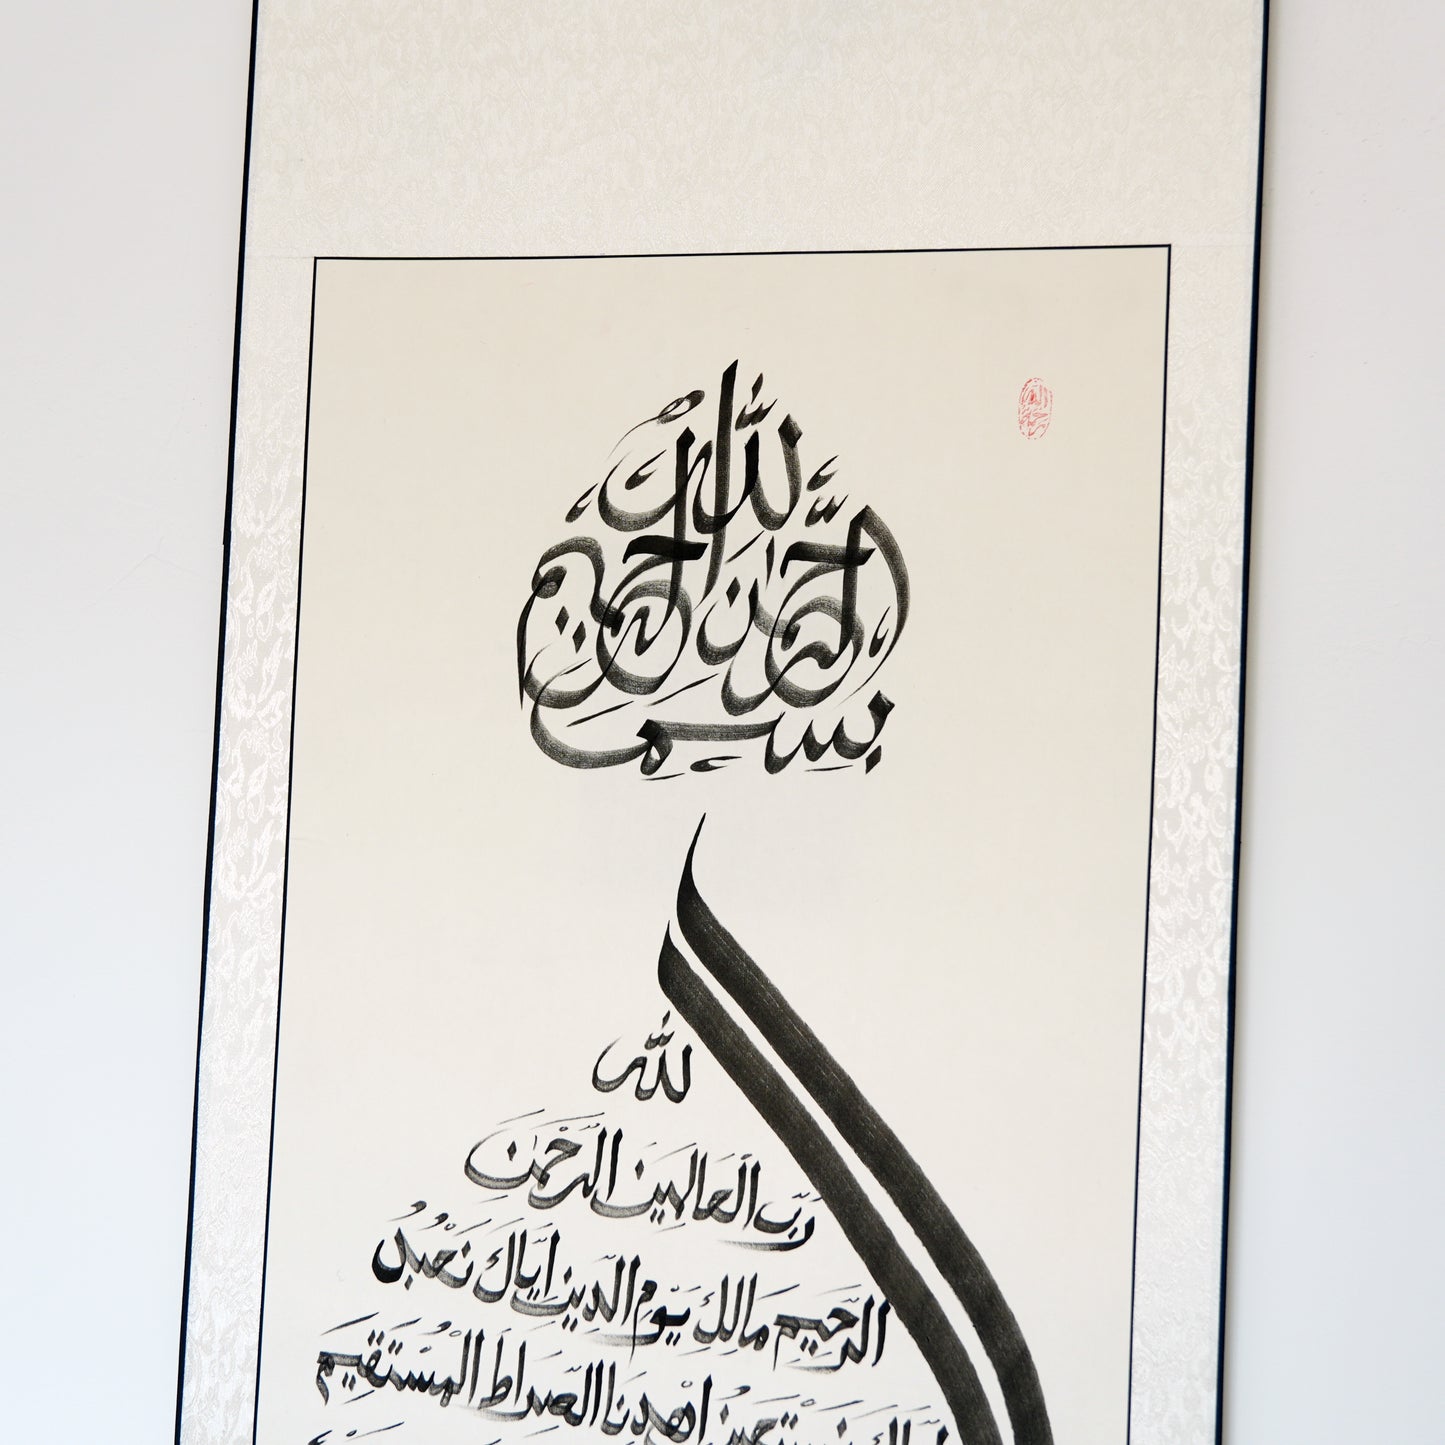 بسم الله الرحمن الرحيم
لله
رَبِّ العَالَمِينَ الرَّحْمَٰنِ
الرَّحِيمِ مَالِكِ يَوْمِ الدِّينِ إِيَّاكَ نَعْبُدُ
نَسْتَعِينُ اهْدِنَا الصِّرَاطَ الْمُسْتَقِيمَ